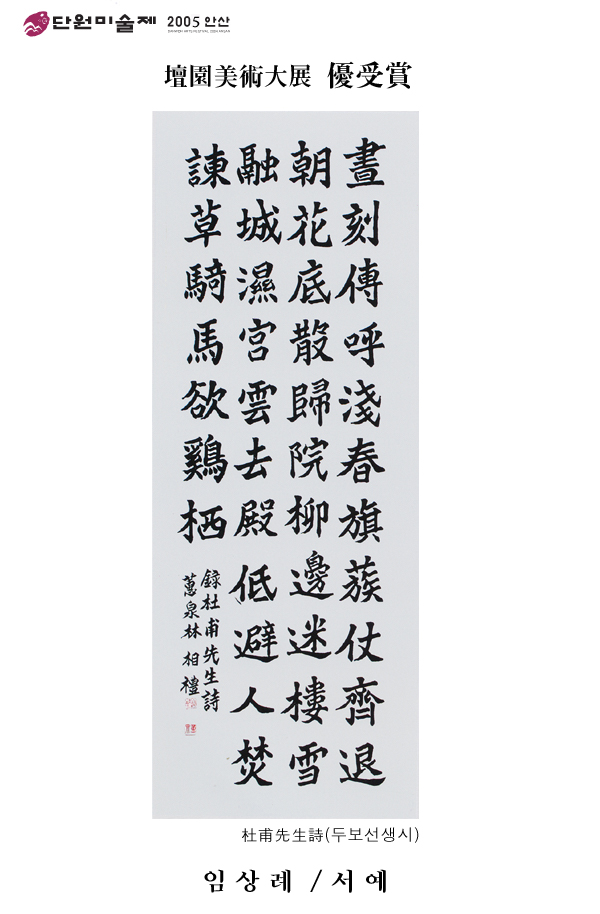 단원미술제 2005 안산
DANWON ARTS FESTIVAL 2005 ANSAN
壇園美術大展 優受賞
晝刻傳呼淺春旗蔟仗齊退
朝花底散歸院柳邊迷樓雪
融城濕宮雲去殿低避人焚
諫草騎馬欲鷄栖
錄杜甫先生詩
蕙泉林相禮
杜甫先生詩(두보선생시)
임상례 / 서예